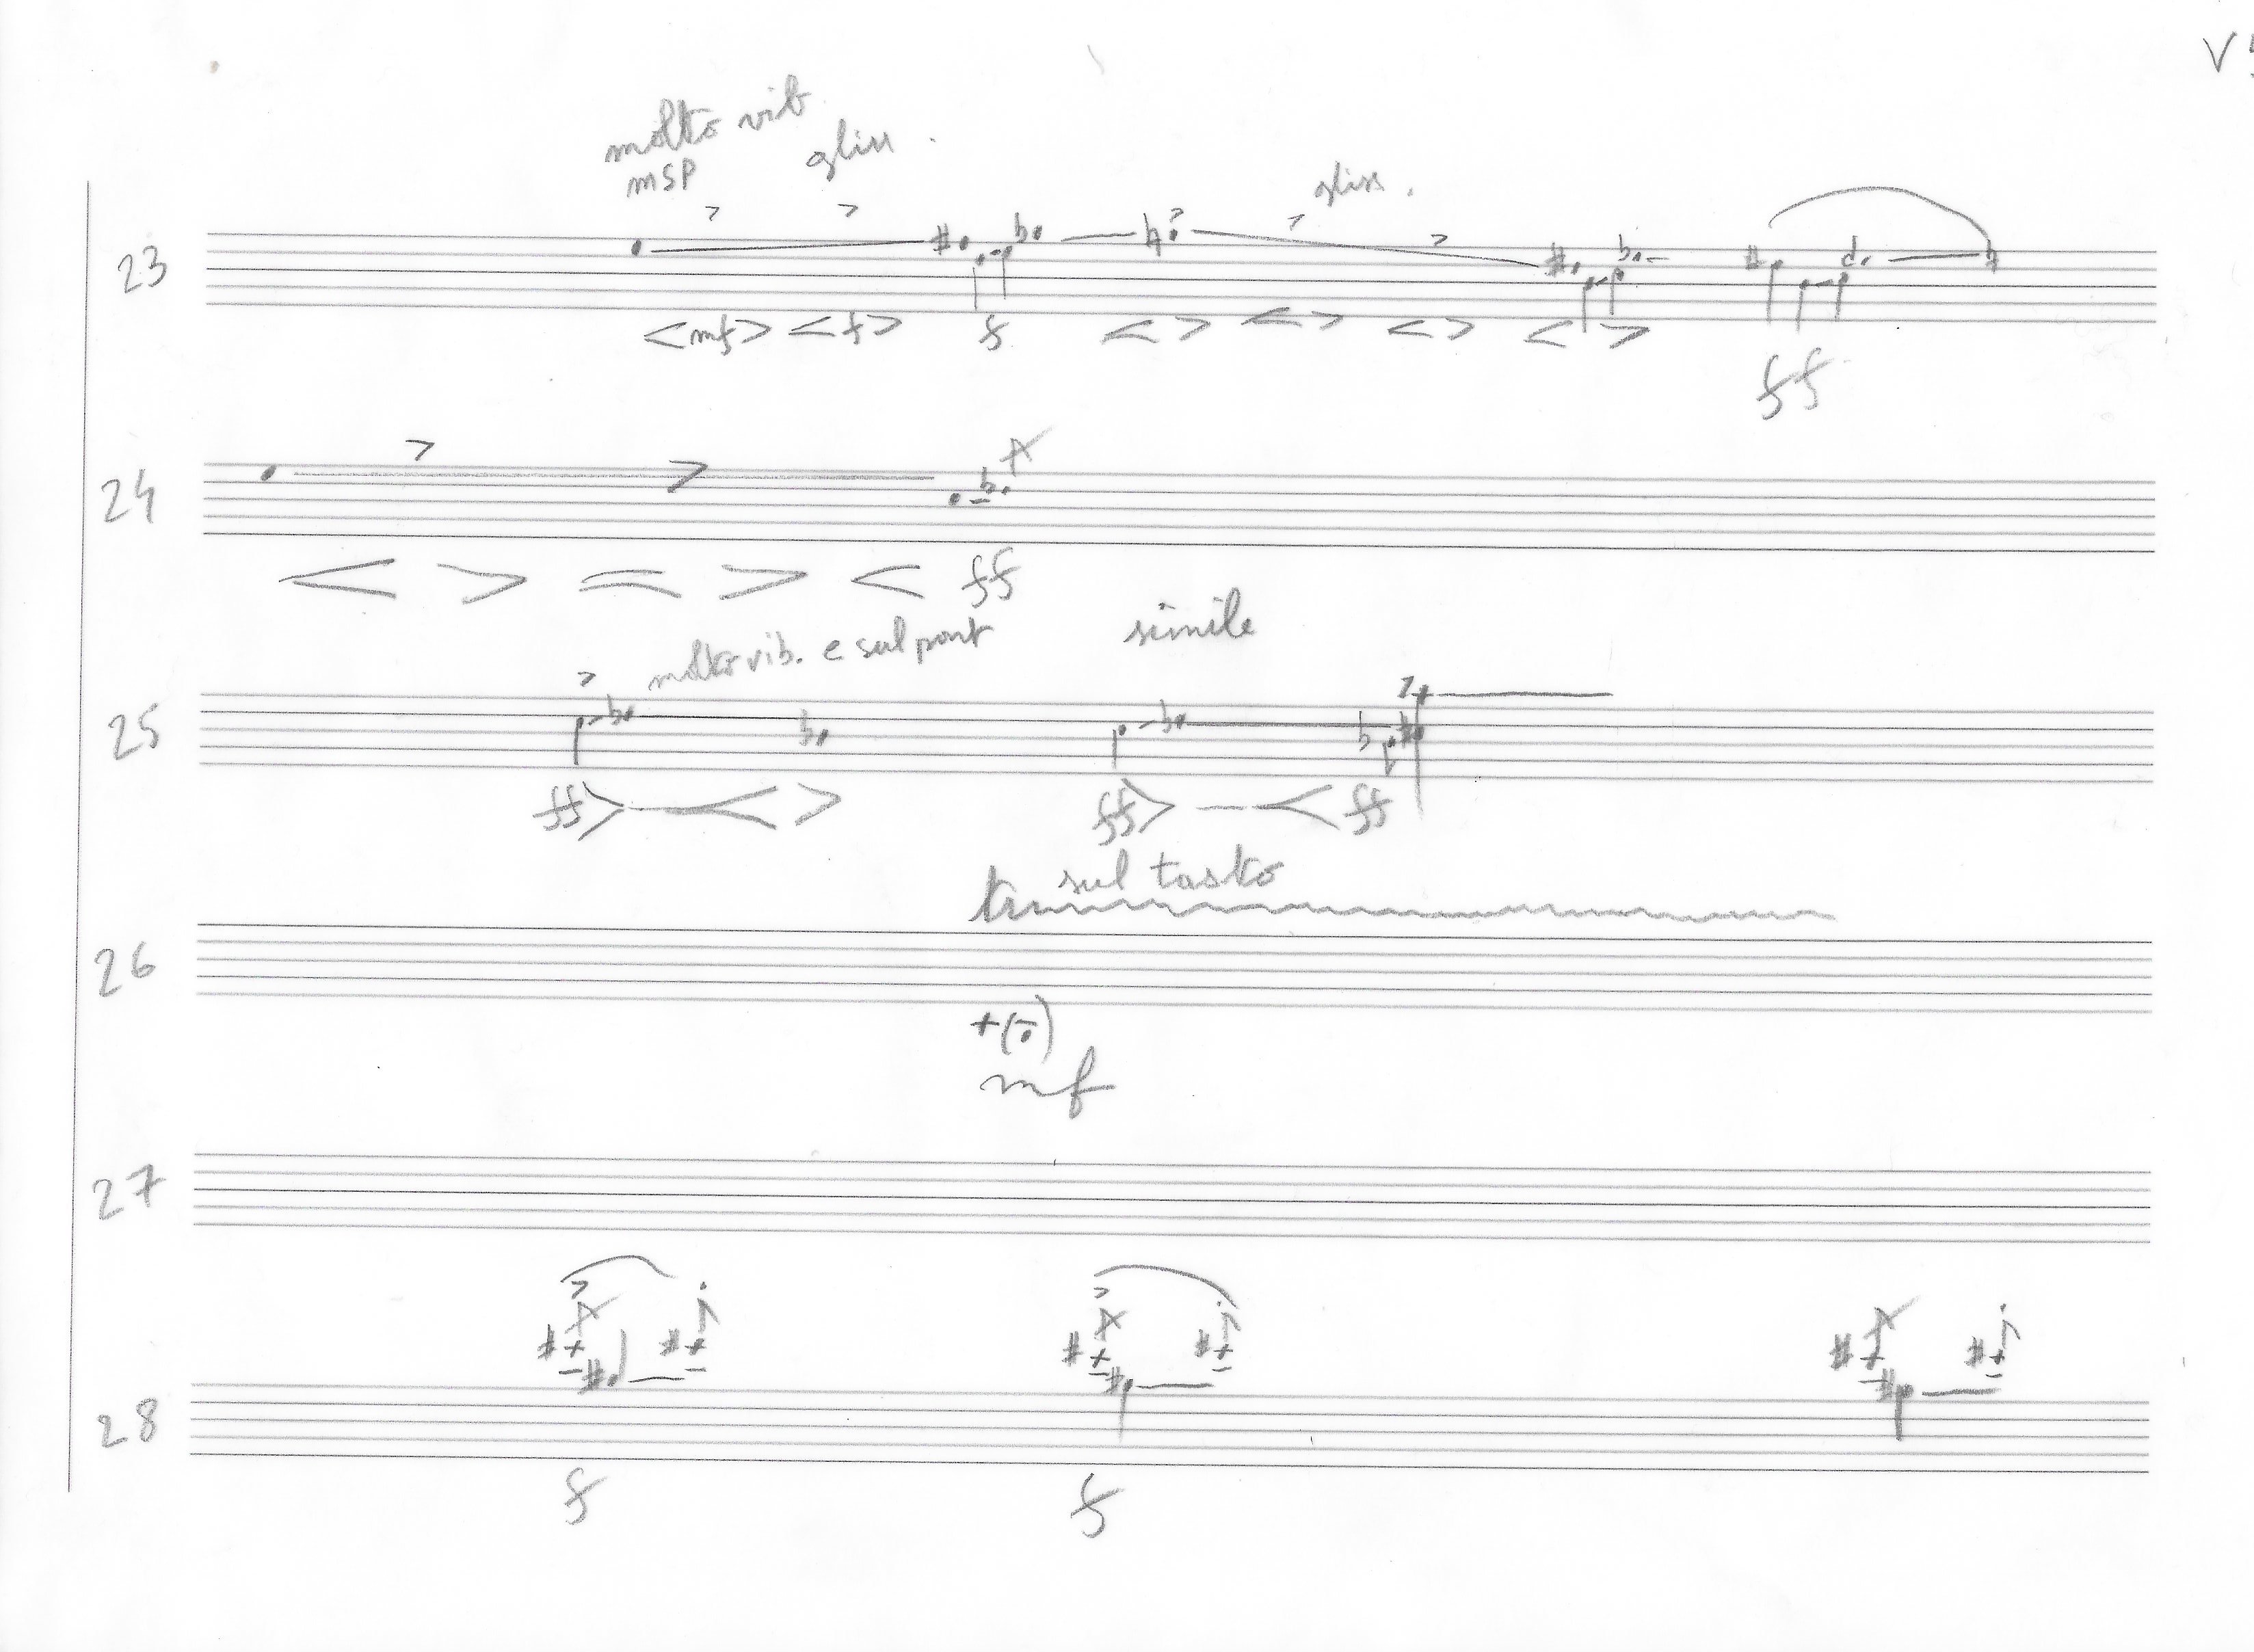 molto vib
gliss.
msp
gliss.
23
<mf> <f> f < > < > < > < >
ff
24
< > < > < ff
molto vib. e sul pont
simile
25
ff> < > ff> < ff
sul tasto
tr
26
+(
mf
27
28
f f